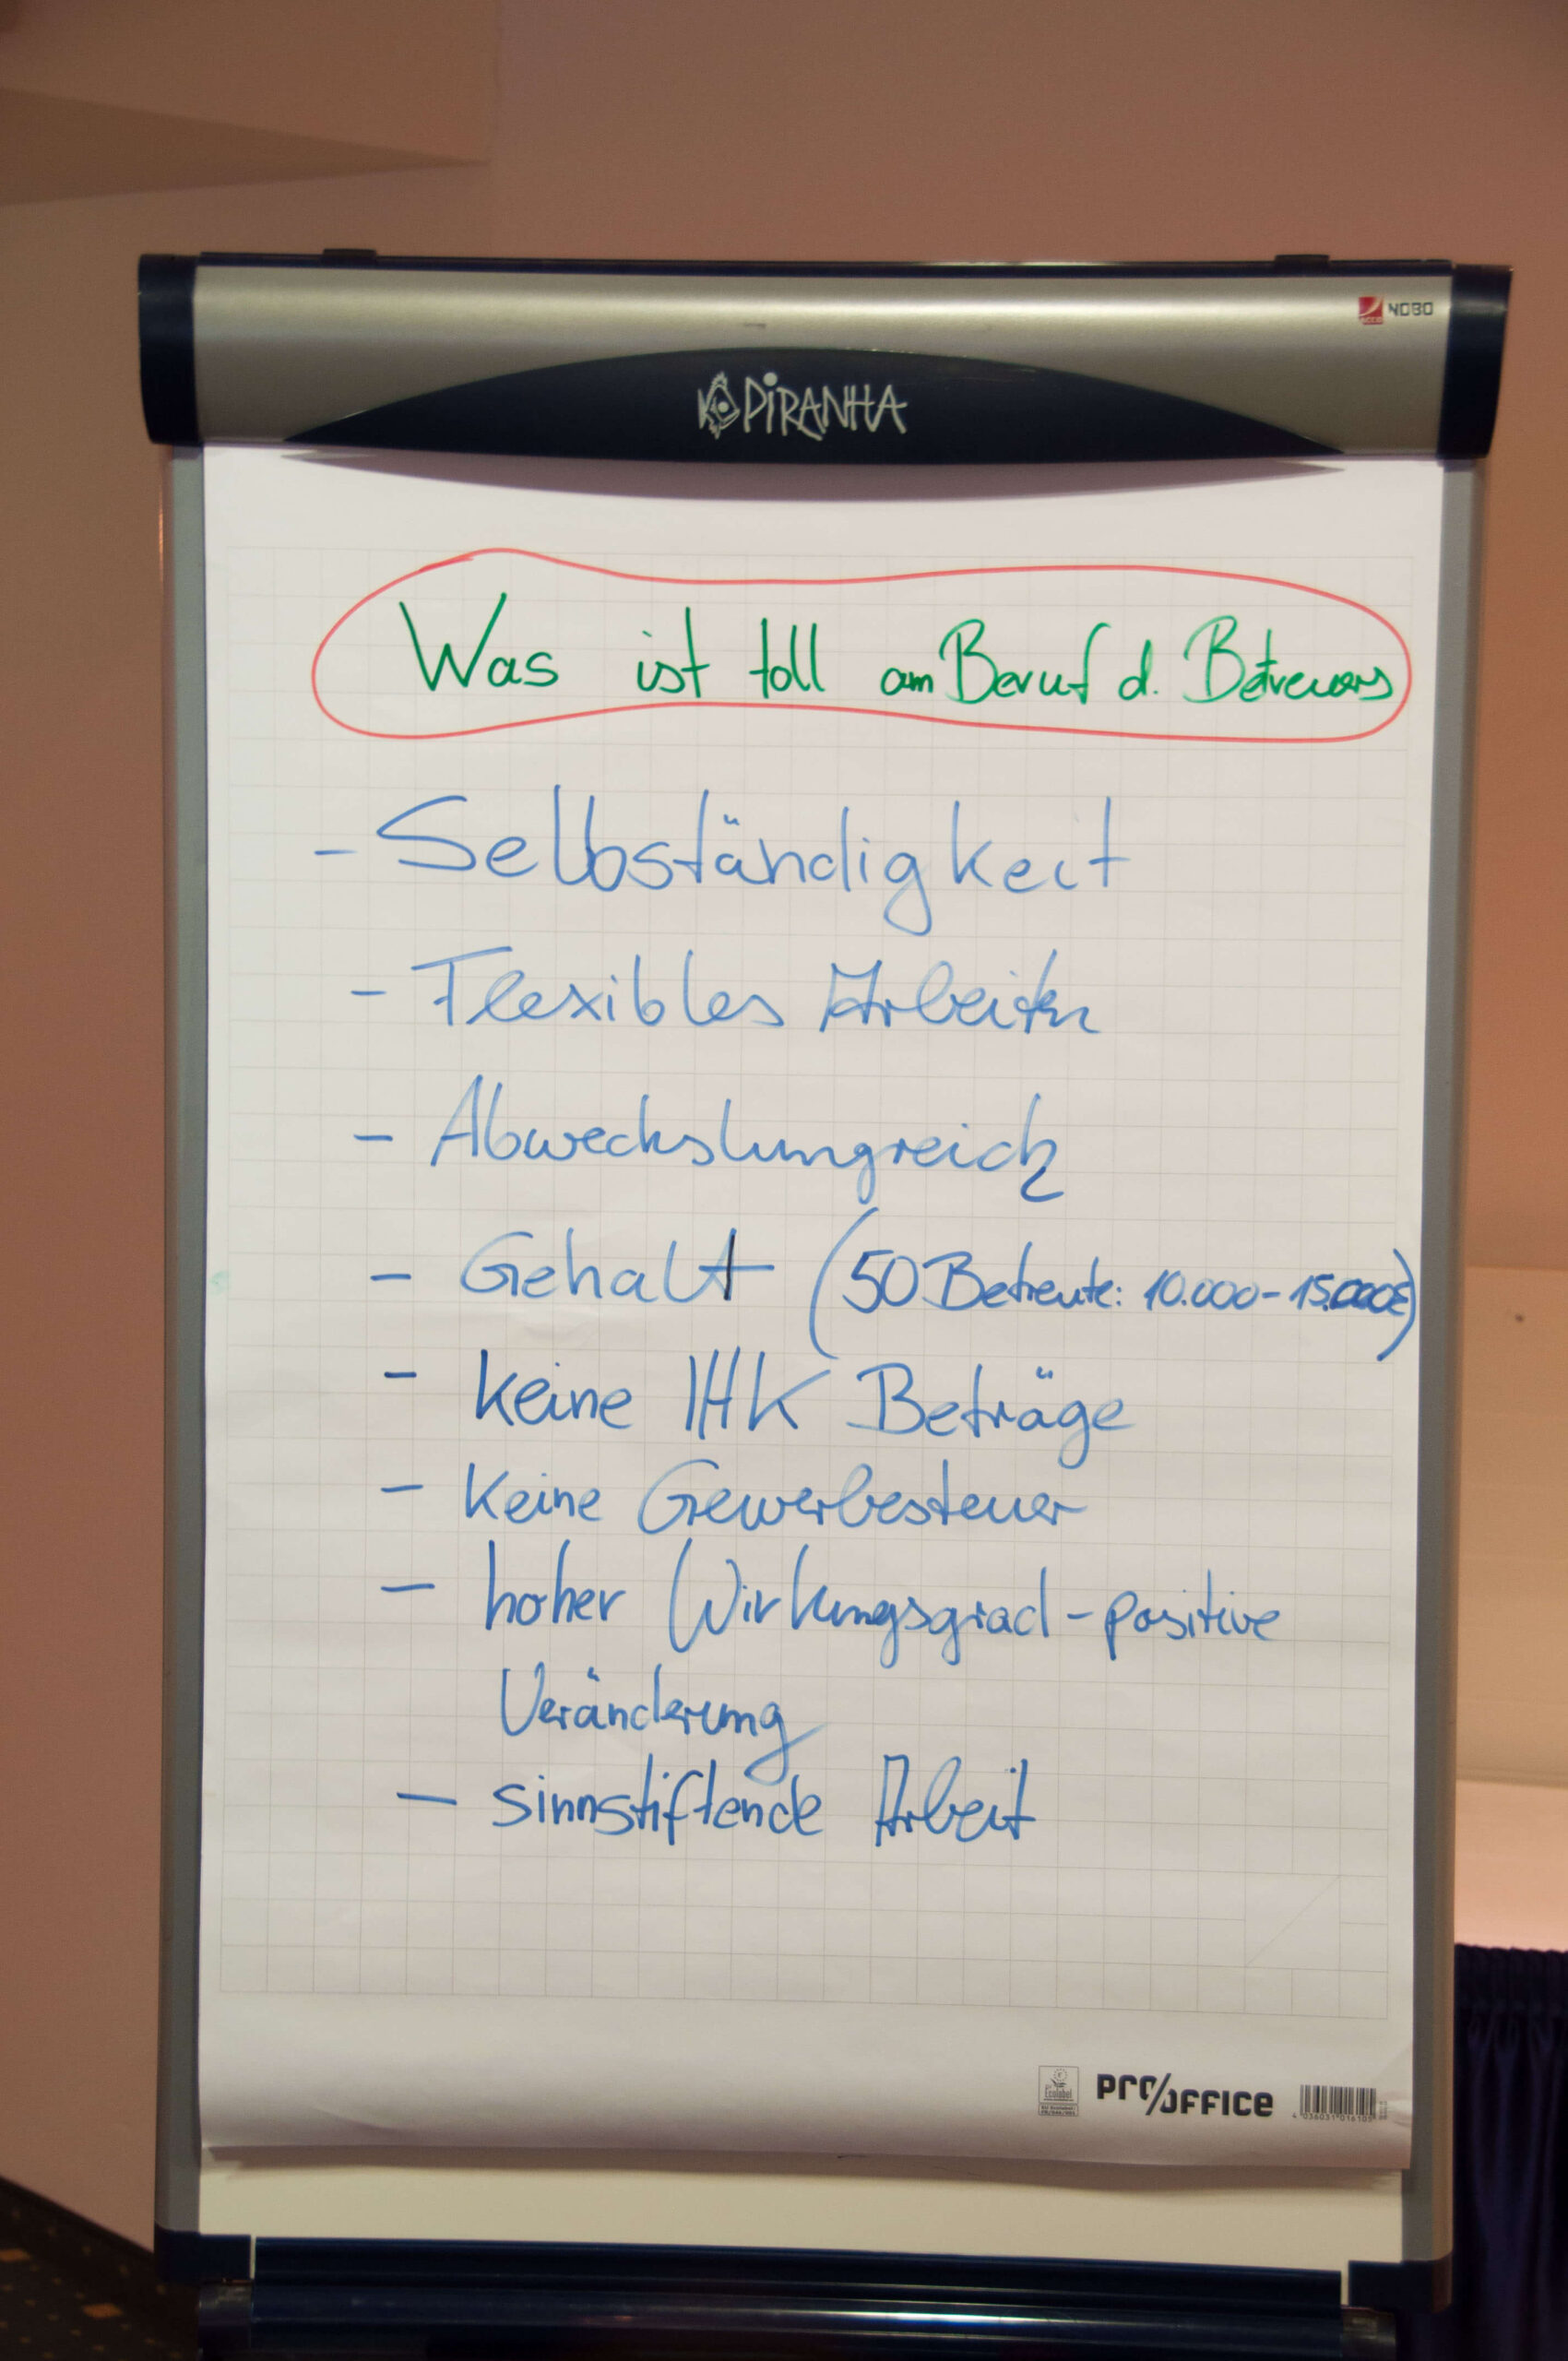 NOBO
PiRANHA
Was ist toll am Beruf d. Betreuers
- Selbständigkeit
- Flexibles Arbeiten
- Abwechslungreich
- Gehalt (50 Betreute: 10.000-15.000€)
- keine IHK Beträge
- Keine Gewerbesteuer
- hoher Wirkungsgrad - positive
Veränderung
- sinnstiftende Arbeit
Ecolabel
PRO/OFFICE
4 036031 016105